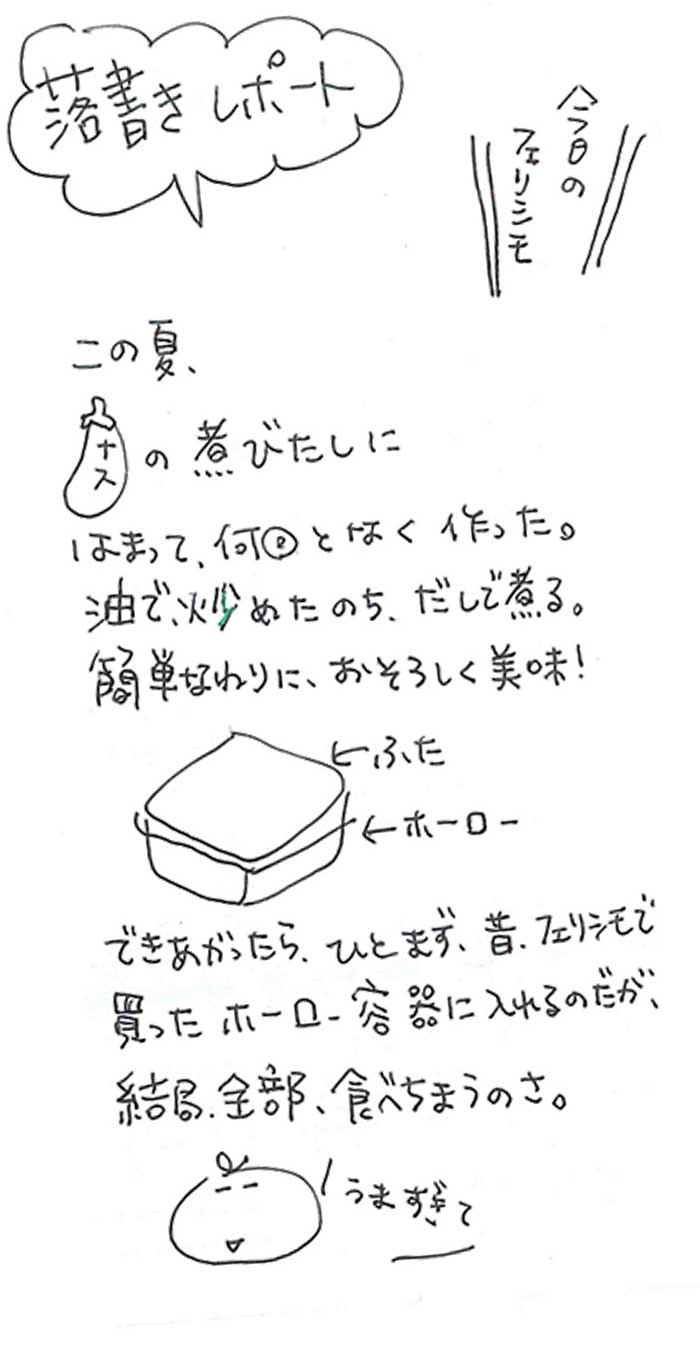 落書きレポート
今日の
フェリシモ
この夏、
ナスの煮びたしに
はまって、何回となく作った。
油で、炒めたのち、だしで煮る。
簡単なわりに、おそろしく美味!
←ふた
←ホーロー
できあがったら、ひとまず、昔、フェリシモで
買ったホーロー容器に入れるのだが、
結局、全部、食べちまうのさ。
うますぎて